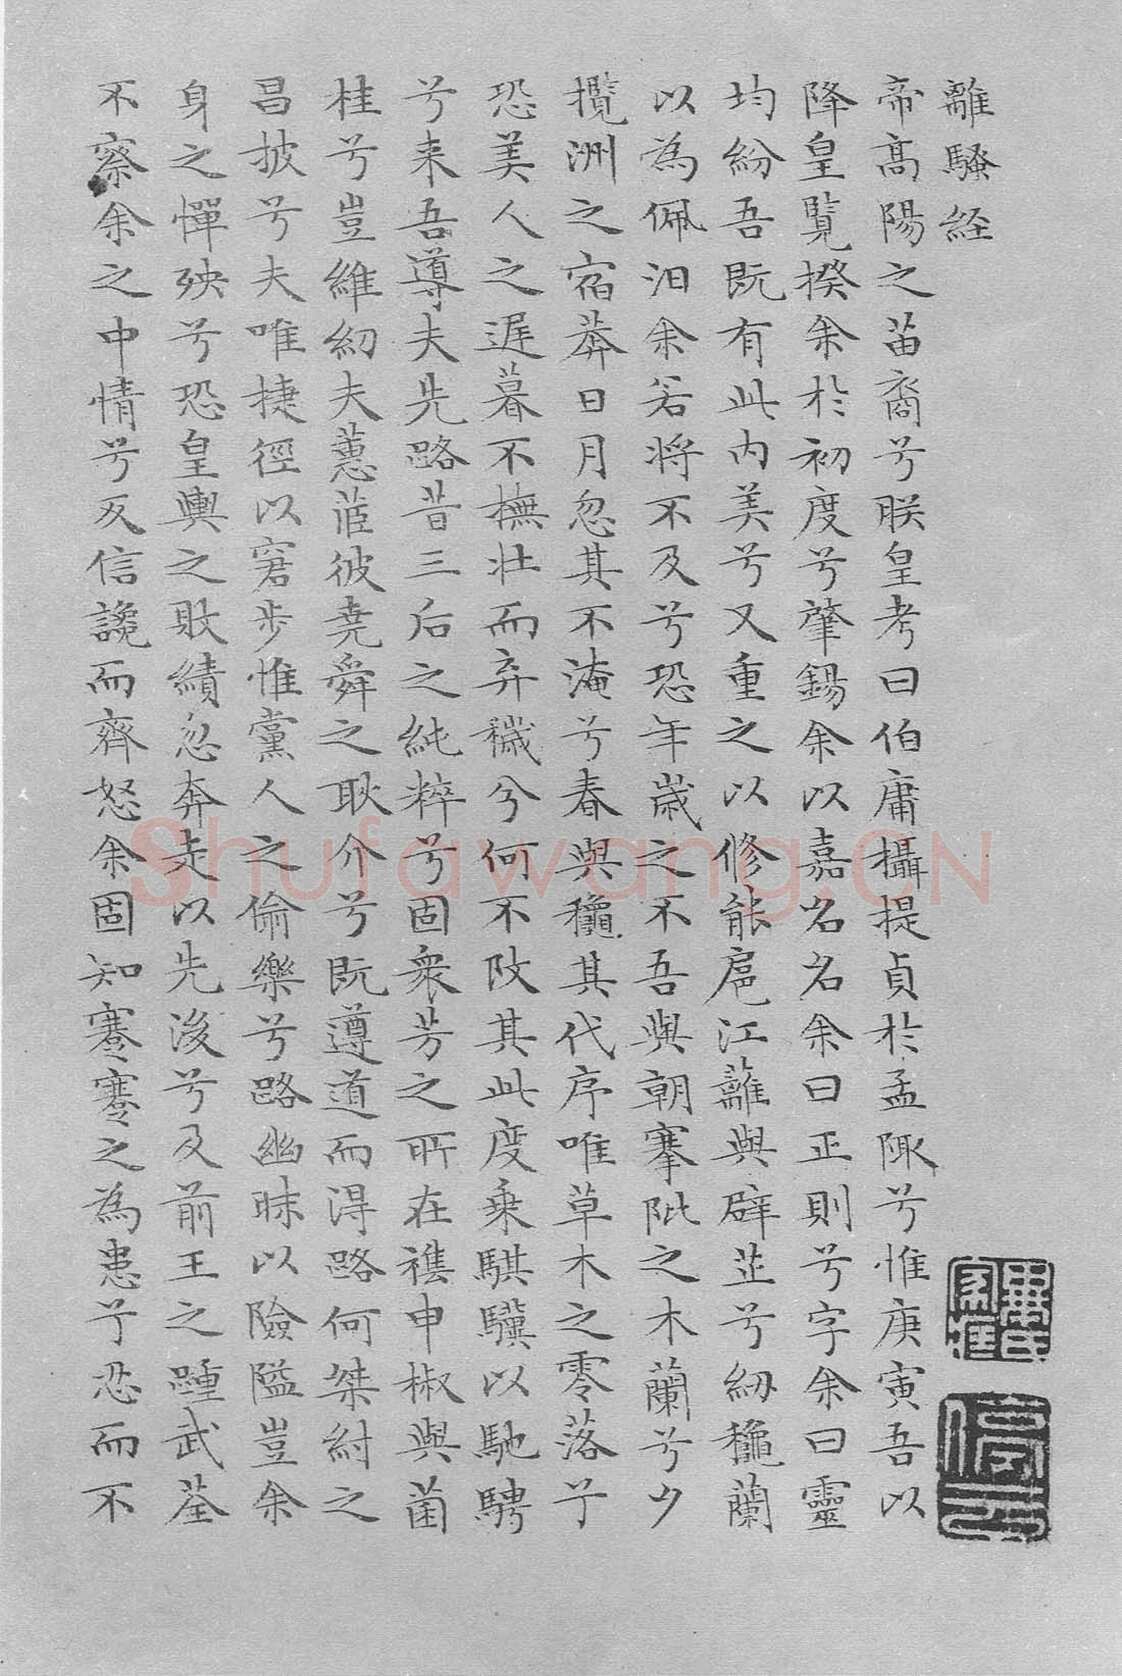 離騷経
帝高陽之苗裔兮朕皇考曰伯庸攝提貞於孟陬兮惟庚寅吾以
降皇覽揆余於初度兮肇錫余以嘉名名余曰正則兮字余曰靈
均紛吾既有此内美兮又重之以修能扈江蘺與辟芷兮紉龝蘭
以為佩汩余若将不及兮恐年歲之不吾與朝搴阰之木蘭兮夕
攬洲之宿莽日月忽其不淹兮春與龝其代序唯草木之零落兮
恐美人之遅暮不撫壮而弃穢兮何不改其此度乗騏驥以馳騁
兮来吾導夫先路昔三后之純粹兮固衆芳之所在襍申椒與菌
桂兮豈維紉夫蕙茝彼堯舜之耿介兮既遵道而得路何桀紂之
昌披兮夫唯捷徑以窘步惟黨人之偷樂兮路幽昧以險隘豈余
身之憚殃兮恐皇輿之敗績忽奔走以先後兮及前王之踵武荃
不察余之中情兮反信讒而齊怒余固知謇謇之為患兮忍而不
Shufawang.CN